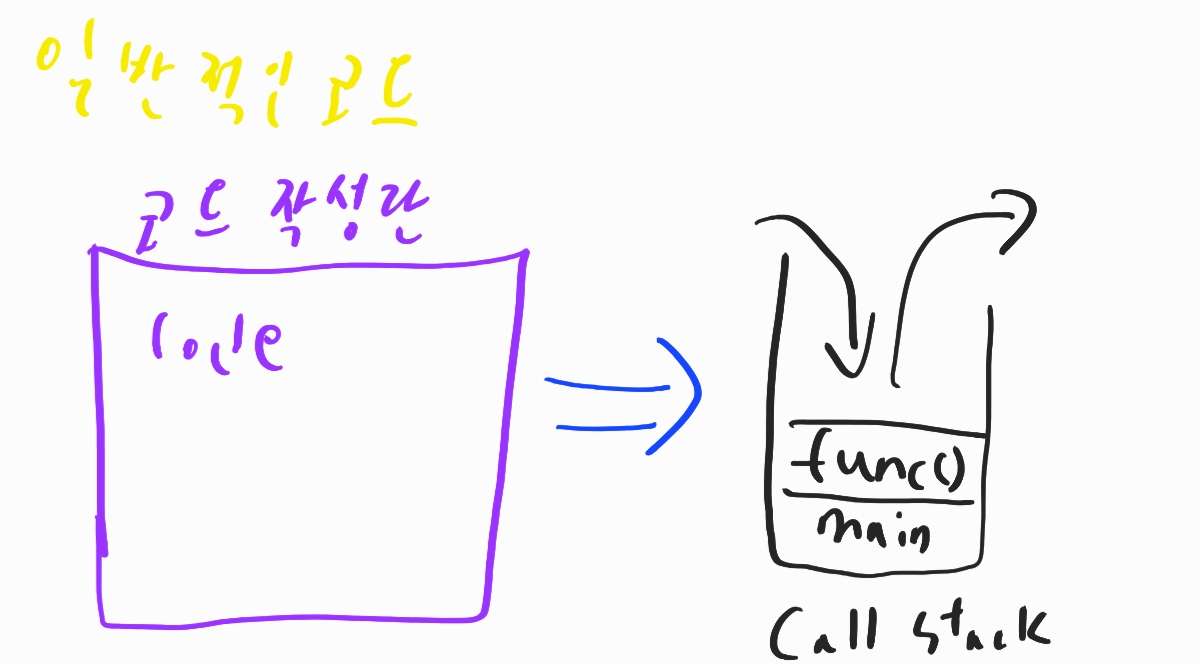 일반적인 코드
코드 작성란
Code
func()
main
Call stack